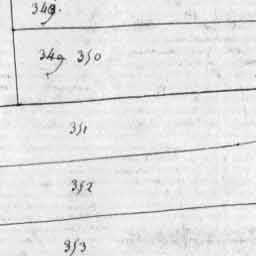 349.
349 350
351
352
353